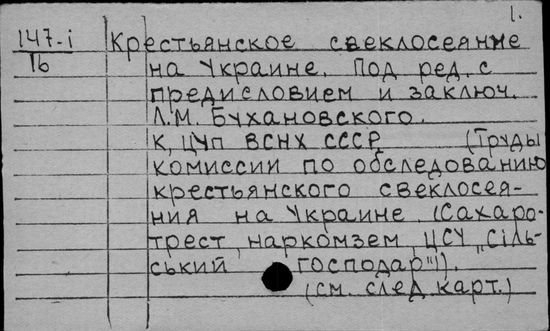 1.
147-i Крестьянское свеклосеяние
16 на Украине. Под ред. с
предисловием и заключ.
Л.М. Бухановского.
К, ЦУП ВСНХ СССР (Труды
комиссии по обследованию
крестьянского свеклосея-
ния на Украине (Сахаро-
трест, наркомзем, ЦСУ „Сіль-
ський господар")).
(см. след карт.)